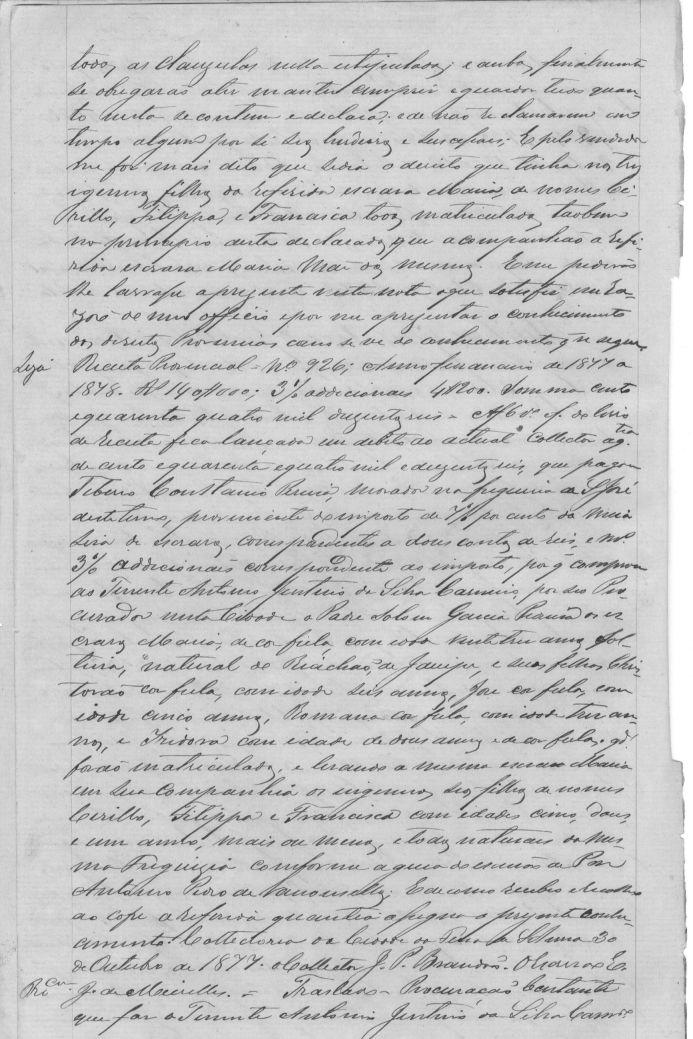 todas as clausulas nella estipuladas; e ambas finalmente
se obrigarão a ter manter cumprir e guardar tudo quan-
to nesta se contem e declara; e de não reclamarem em
tempo algum por si seus herdeiros e successores; E pelo vendedor
me foi mais dito que cedia o direito que tinha nos tres
ingenuos filhos da referida escrava Maria, de nomes Ci-
rillo, Filippa, e Francisca todos matriculados tambem
no principio desta declarados, que acompanhão a refe-
rida escrava Maria Mãe dos mesmos. E me pedirão
lhe lavrasse a presente nesta nota o que satisfiz em ra-
zão de meu officio e por me apresentar o conhecimento
dos direitos Provinciaes como se ve do conhecimento que segue
Leza Receita Provincial = Nº 926; Anno financeiro de 1877 a
1878. Rs 140$000; 3% addicionais 4$200. Somma cento
e quarenta quatro mil duzentos reis = Af do livro
de Receita fica lançada em debito ao actual Collector a qtia
de cento e quarenta e quatro mil e duzentos reis, que pagou
Tiberio Constancio, morador na freguezia de S. José
deste termo, proveniente do imposto de 7% por cento da meia
siza de escravos, correspondentes a dous contos de reis, e mais
3% addicionais correspondente ao imposto, por q comprou
ao Tenente Antonio Justino da Silva Carneiro, por seo Pro-
curador nesta Cidade o Padre Garcia os es-
cravos Maria, de cor fula, com idade vinte tres annos, sol-
teira, natural de Riachão, de Jacuipe, e seus filhos Chris-
tovão cor fula, com idade seis annos, José cor fula, com
idade cinco annos, Romana cor fula, com idade tres an-
nos, e Izidora com idade de dous annos e de cor fula, q
forão matriculados, e levando a mesma escrava Maria
em sua companhia os ingenuos seus filhos de nomes
Cirillo, Filippa e Francisca com edades cinco, dous
e um anno, mais ou menos, e todos naturaes da mes-
ma Freguezia conforme a guia do escrivão de Paz
Antonio Pedro de Vasconcellos; E de como recebeo e recolheo
ao cofre a referida quantia assignou o presente conhe-
cimento. Collectoria da Cidade da Feira de S. Anna 30
de Outubro de 1877. O Collector J. P. Brandão. O Escrivão E.
J. de Meirelles. = Traslado = Procuração bastante
que faz o Tenente Antonio Justino da Silva Carnº